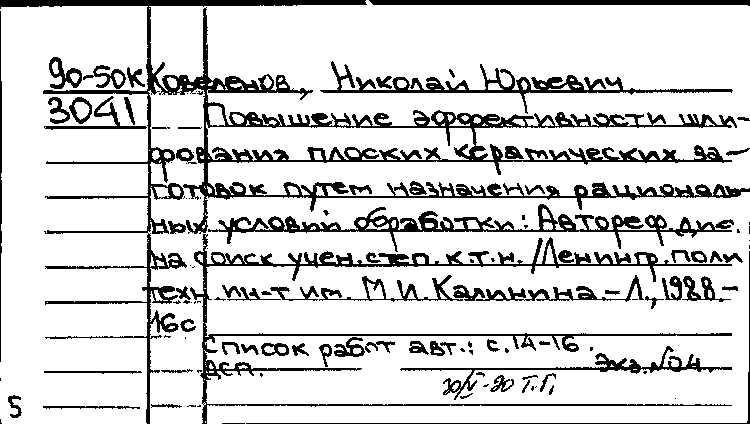 90-50к Ковеленов, Николай Юрьевич.
3041 Повышение эффективности шли-
фования плоских керамических за-
готовок путем назначения рациональ-
ных условий обработки: Автореф. дис.
на соиск учен. степ. к.т.н. /Ленингр. поли
техн. ин-т им. М.И. Калинина. – Л., 1988. –
16с
Список работ авт.: с. 14-16.
ДСП. Экз. №04.
30/V-90 Т.Г.
5